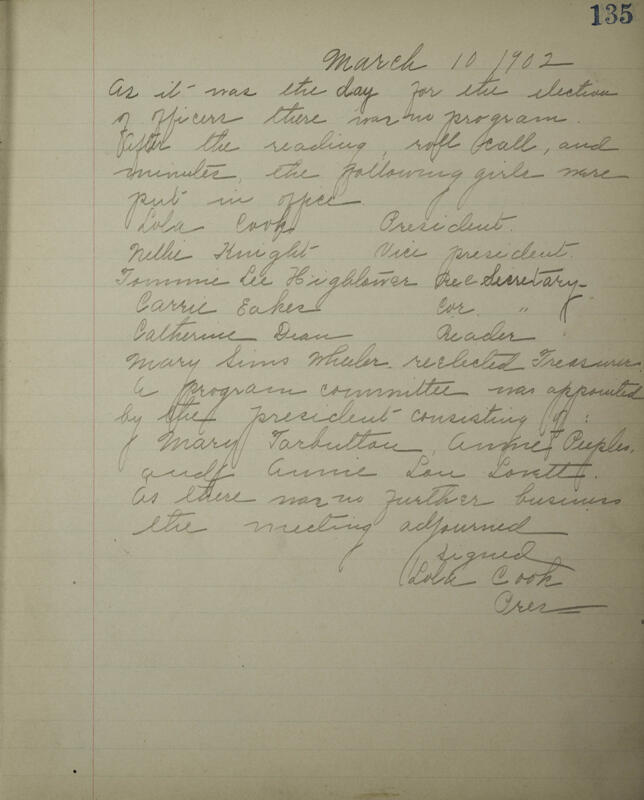 135
March 10 1902
As it was the day for the election
of officers there was no program.
After the reading, roll call, and
minutes, the following girls were
put in office
Lola Cook President.
Nellie Knight Vice president.
Tommie Lee Hightower Rec Secretary
Carrie Eakes Cor. "
Catherine Dean Reader
Mary Sims Wheeler reelected Treasurer.
A program committee was appointed
by the president consisting of:
Mary Tarbutton, Annie Peeples,
and Annie Lou Lovett.
As there was no further business
the meeting adjourned
signed
Lola Cook
Pres